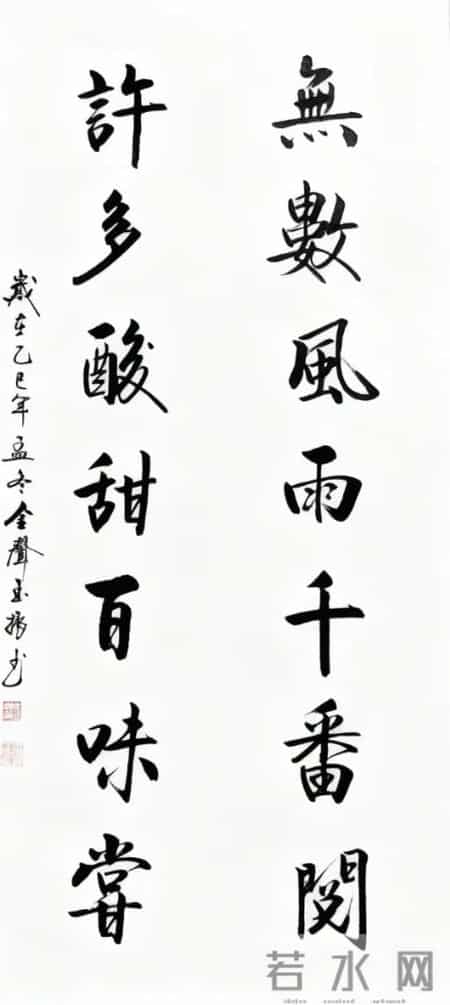 無數風雨千番閱
許多酸甜百味嘗
歲在乙巳年孟冬金聲玉振书
若水网